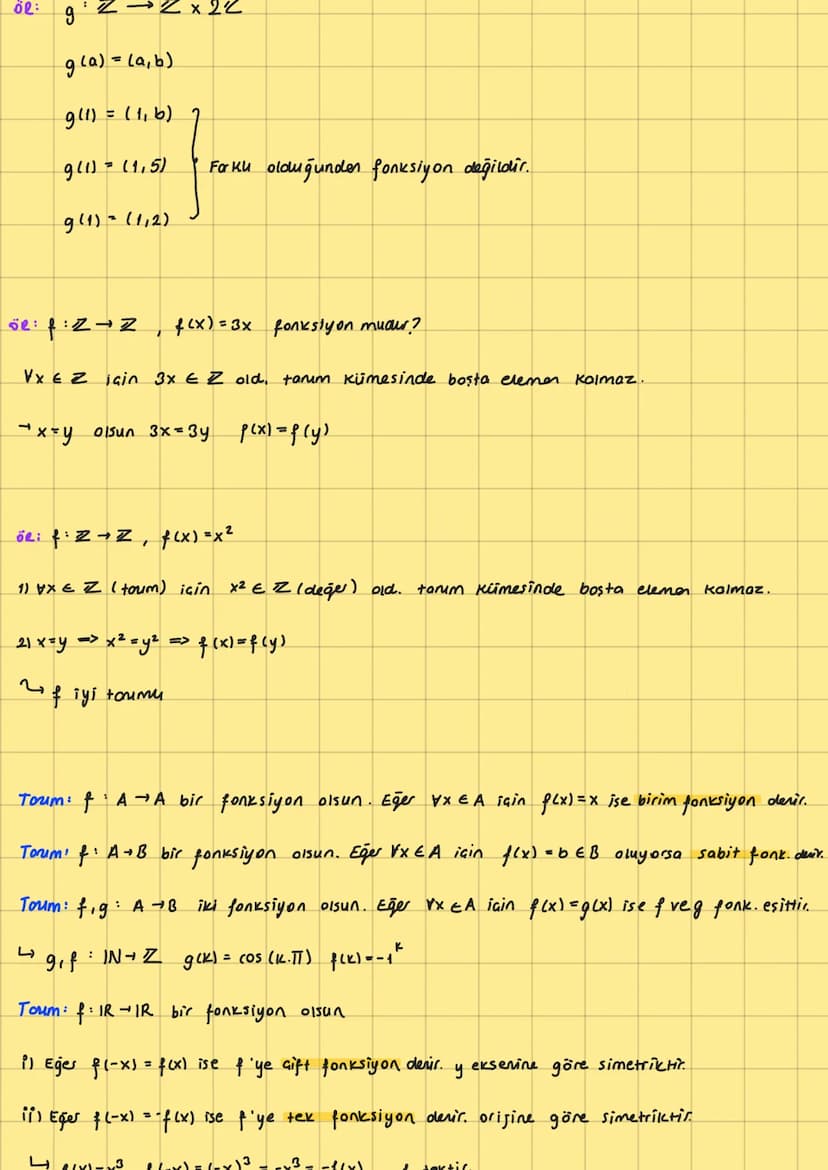 ör: g : ℤ → ℤ x 2ℤ
g(a) = (a,b)
g(1) = (1,b)
g(1) = (1,5) } Farklı olduğundan fonksiyon değildir.
g(1) = (1,2)
ör: f : ℤ → ℤ , f(x) = 3x fonksiyon mudur?
∀x ∈ ℤ için 3x ∈ ℤ old. tanım kümesinde boşta eleman kalmaz.
→ x=y olsun 3x=3y f(x)=f(y)
ör: f : ℤ → ℤ , f(x) = x²
1) ∀x ∈ ℤ (tanım) için x² ∈ ℤ (değer) old. tanım kümesinde boşta eleman kalmaz.
2) x=y => x²=y² => f(x)=f(y)
↪ f iyi tanımlı
Tanım: f : A → A bir fonksiyon olsun. Eğer ∀x ∈ A için f(x)=x ise birim fonksiyon denir.
Tanım: f : A → B bir fonksiyon olsun. Eğer ∀x ∈ A için f(x) = b ∈ B oluyorsa sabit fonk. denir.
Tanım: f,g : A → B iki fonksiyon olsun. Eğer ∀x ∈ A için f(x) = g(x) ise f ve g fonk. eşittir.
↳ g,f : ℕ → ℤ g(k) = cos(k.π) f(k) = -1ᵏ
Tanım: f : ℝ → ℝ bir fonksiyon olsun
i) Eğer f(-x) = f(x) ise f'ye çift fonksiyon denir. y eksenine göre simetriktir.
ii) Eğer f(-x) = -f(x) ise f'ye tek fonksiyon denir. orijine göre simetriktir.
↳ f(x)=x³ f(-x) = (-x)³ = -x³ = -f(x) f tektir.